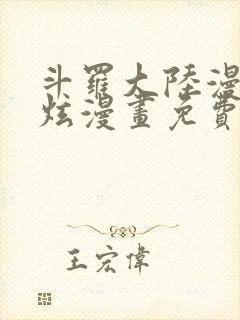 斗羅大陸漫
炫漫畫免費
王宏偉